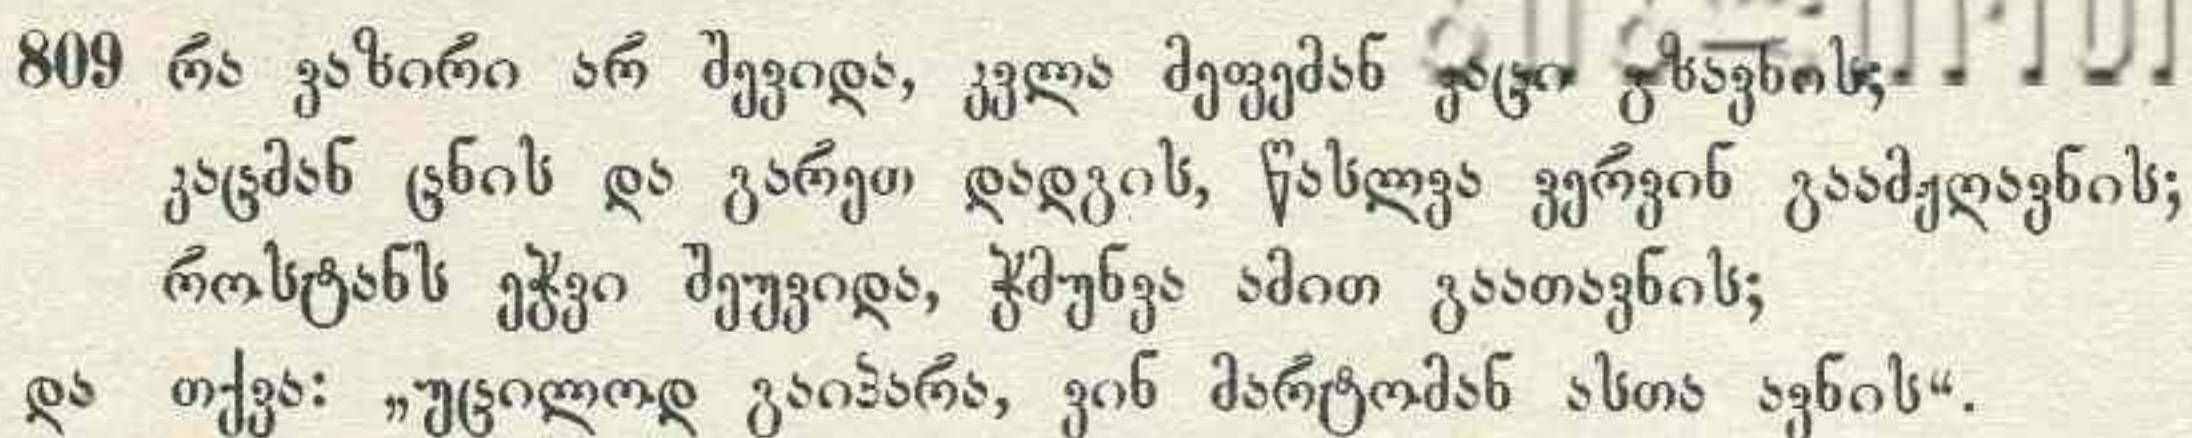 809 რა ვაზირი არ შევიდა, კვლა მეფემან კაცი გზავნის;
კაცმან ცნის და გარეთ დადგის, წასლვა ვერვინ გაამჟღავნის;
როსტანს ეჭვი შეუვიდა, ჭმუნვა ამით გაათავნის;
და თქვა: „უცილოდ გაიპარა, ვინ მარტომან ასთა ავნის“.